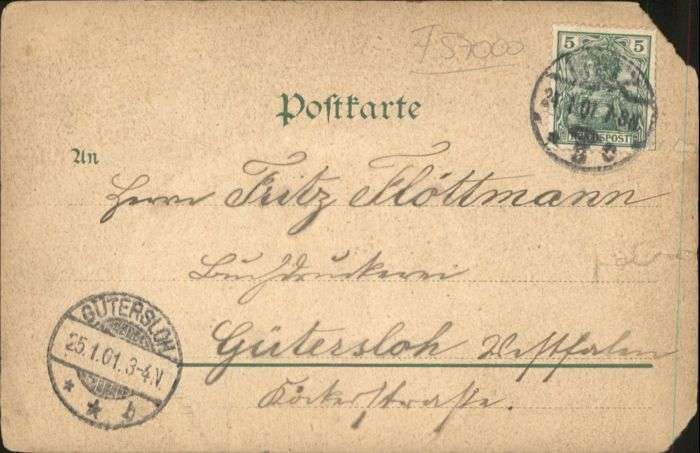 F57000
5 5
24.1.01.7-8N
* b c
REICHSPOST
Postkarte
An
Herrn Fritz Flöttmann
Buchdruckerei
Gütersloh Westfalen
Kökerstrasse.
GÜTERSLOH
25.1.01.3-4.V
* * b